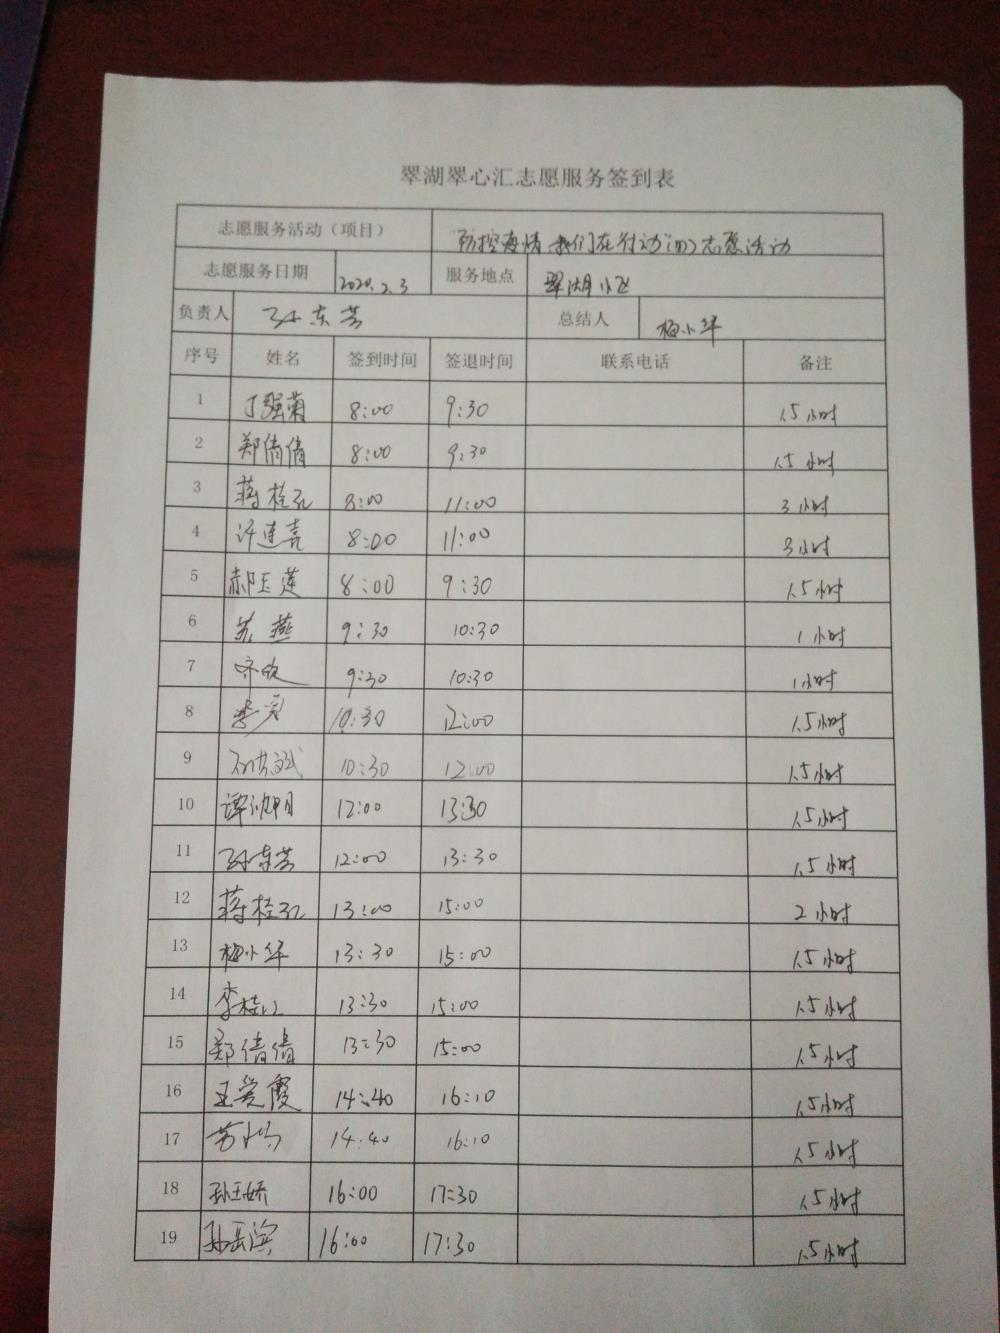 翠湖翠心汇志愿服务签到表
志愿服务活动（项目） 防控疫情 我们在行动（四）志愿活动
志愿服务日期 2020.2.3 服务地点 翠湖小区
负责人 孙东芳 总结人 梅小华
序号 姓名 签到时间 签退时间 联系电话 备注
1 丁强菊 8:00 9:30 1.5小时
2 郑倩倩 8:00 9:30 1.5小时
3 蒋桂孔 8:00 11:00 3小时
4 许连喜 8:00 11:00 3小时
5 郝玉莲 8:00 9:30 1.5小时
6 苏燕 9:30 10:30 1小时
7 9:30 10:30 1小时
8 10:30 12:00 1.5小时
9 10:30 12:00 1.5小时
10 12:00 13:30 1.5小时
11 孙东芳 12:00 13:30 1.5小时
12 蒋桂孔 13:00 15:00 2小时
13 梅小华 13:30 15:00 1.5小时
14 13:30 15:00 1.5小时
15 郑倩倩 13:30 15:00 1.5小时
16 王爱霞 14:40 16:10 1.5小时
17 14:40 16:10 1.5小时
18 孙玉娇 16:00 17:30 1.5小时
19 孙岳滨 16:00 17:30 1.5小时